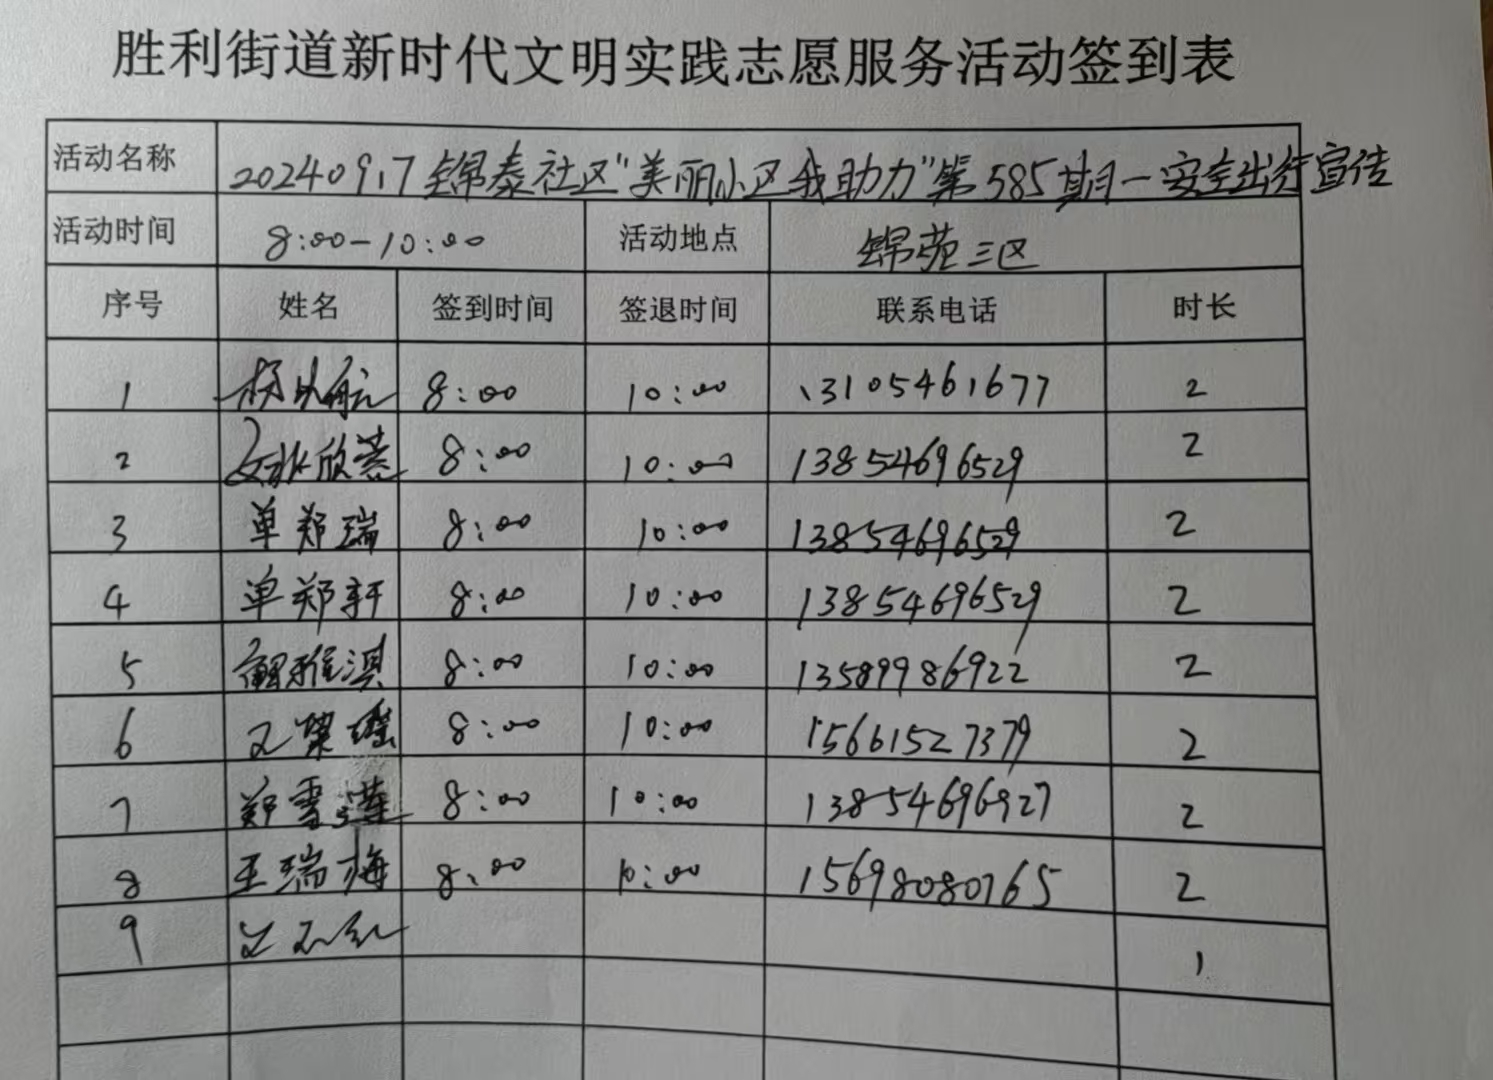 胜利街道新时代文明实践志愿服务活动签到表
活动名称 2024091.7 锦泰社区"美丽小区我助力"第585期—安全出行宣传
活动时间 8:00-10:00 活动地点 锦苑三区
序号 姓名 签到时间 签退时间 联系电话 时长
1 8:00 10:00 13105461677 2
2 8:00 10:00 13854696529 2
3 单郑瑞 8:00 10:00 13854696529 2
4 单郑轩 8:00 10:00 13854696529 2
5 解雅淇 8:00 10:00 13589986922 2
6 8:00 10:00 15661527379 2
7 郑雪莲 8:00 10:00 13854696927 2
8 王瑞梅 8:00 10:00 15698080765 2
9 1